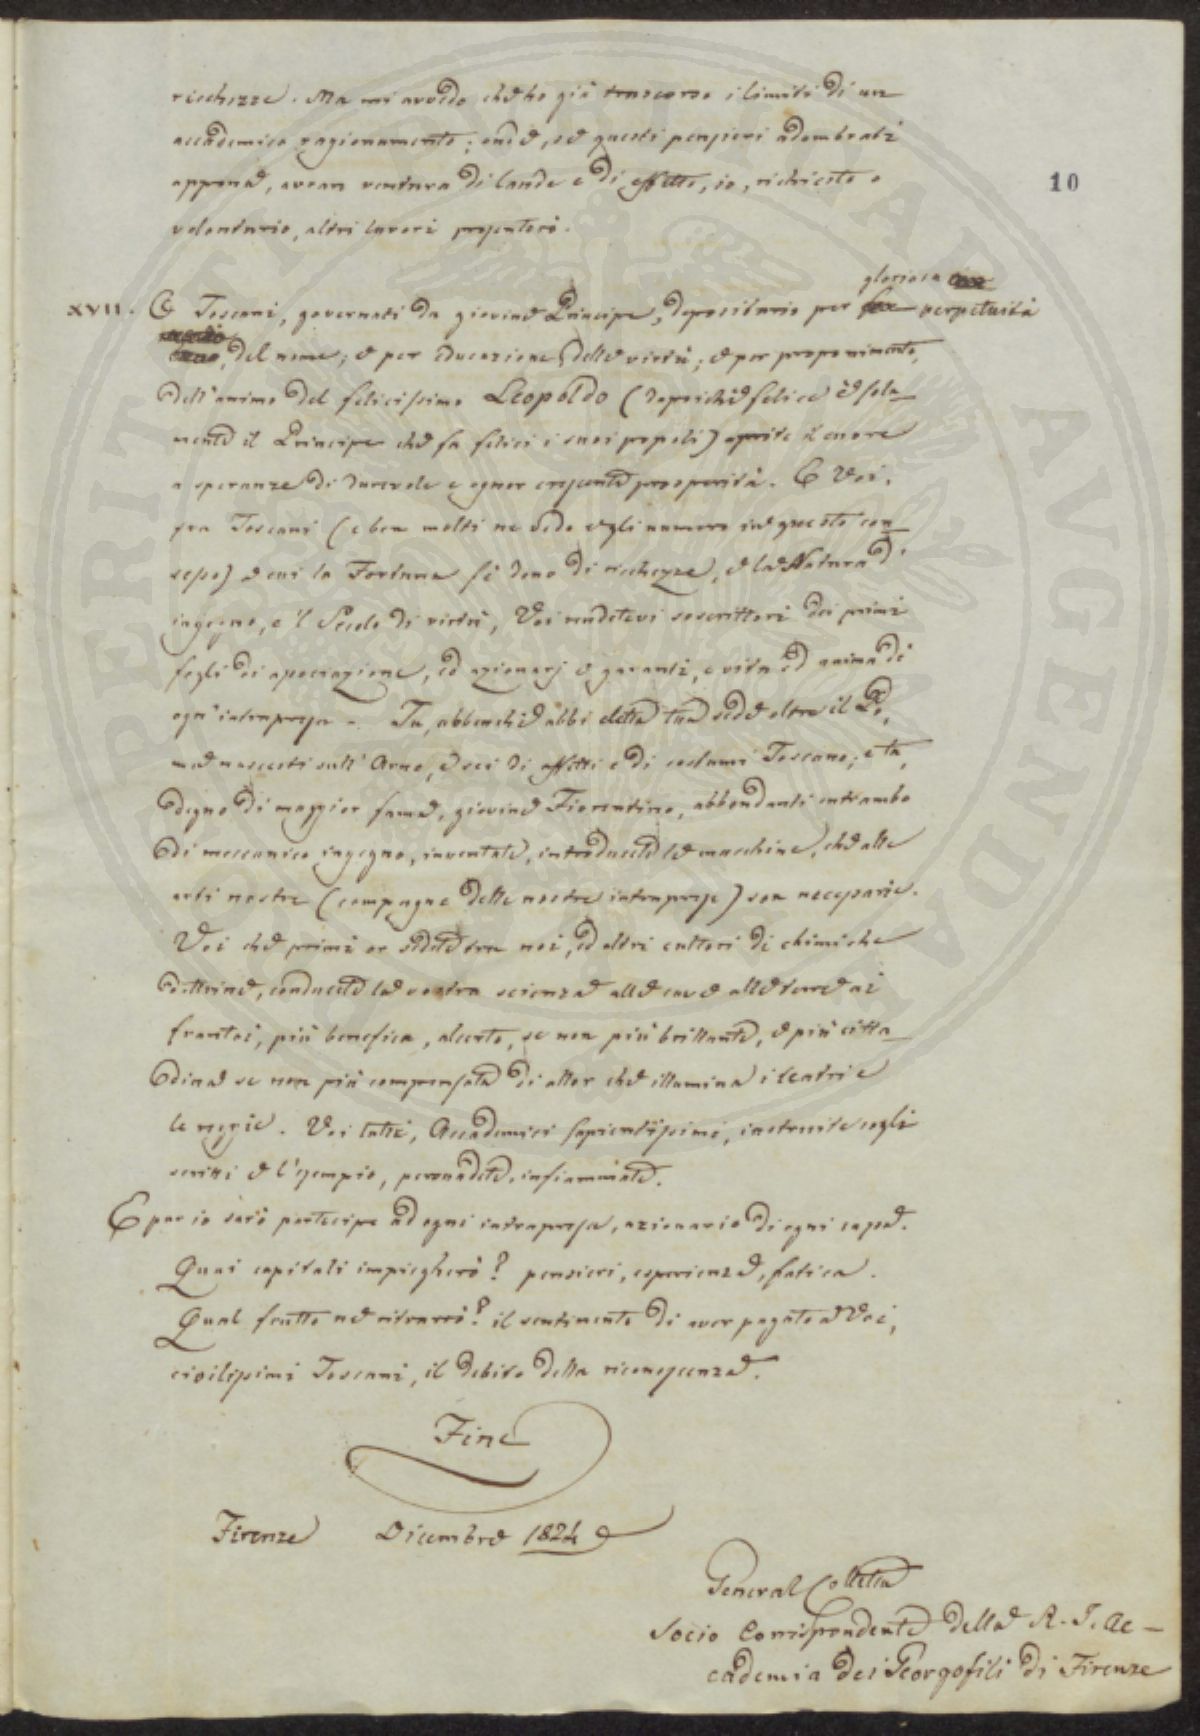 10
ricchezze. Ma mi avvedo che ho già trascorso i limiti di un
accademico ragionamento; onde, se questi pensieri adombrati
appena, avean ventura di laude e di effetto, io, richiesto o
volontario, altri lavori presenterò.
gloriosa
XVII. O Toscani, governati da giovine Principe, depositario per perpetuità
del nome; e per educazione delle virtù; e per proponimento
dell'animo del felicissimo Leopoldo (dopoichè felice è sola
mente il Principe che fa felici i suoi popoli) aprite il cuore
a speranze di durevole e ognor crescente prosperità. E Voi,
fra Toscani (e ben molti ne vedo egli numero in questo con
sesso) a cui la Fortuna fè dono di ricchezze, e la Natura d'
ingegno, e 'l Secolo di virtù, Voi rendetevi soscrittori dei primi
fogli di associazione, ed azionarj e garanti, e vita ed anima di
ogn'intrapresa. Tu, abbenchè abbi eletta tua sede oltre il Po,
me nascesti sull'Arno, e sei di affetti e di costumi Toscano; e tu,
degno di maggior fama, giovine Fiorentino, abbondanti entrambo
di meccanico ingegno, inventate, introducete le macchine, che alle
arti nostre (compagne delle nostre intraprese) son necessarie.
Voi che primi or sedete tra noi, ed altri cultori di chimiche
dottrine, conducete la vostra scienza alle cave alle terre ai
frantoi, più benefica, al certo, se non più brillante, e più citta
dina se non più compensata di allor che illumina i teatri e
le reggie. Voi tutti, Accademici sapientissimi, instruite cogli
scritti e l'esempio, persuadete, infiammate.
E pur io sarò partecipe ad ogni intrapresa, azionario di ogni cassa.
Quai capitali impiegherò? pensieri, esperienze, fatica.
Qual frutto ne ritrarrò? il sentimento di aver pagato a Voi,
civilissimi Toscani, il debito della riconoscenza.
Fine
Firenze Dicembre 1824
General Colletta
Socio Corrispondente della R. I. Ac-
cademia dei Georgofili di Firenze